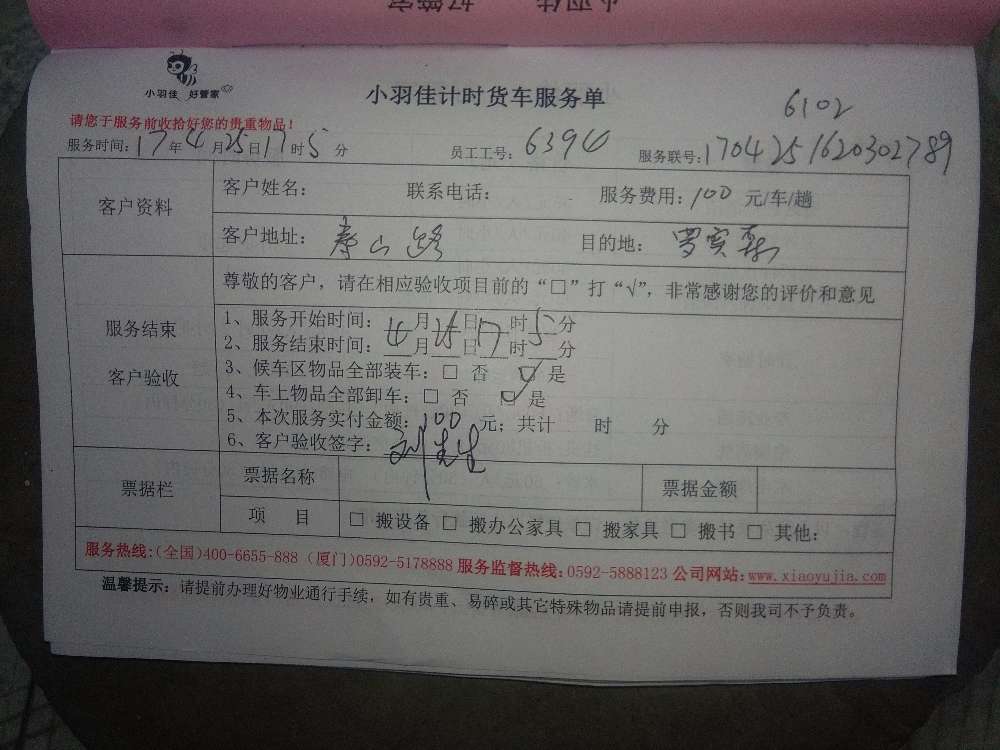 小羽佳 好管家
小羽佳计时货车服务单
6102
请您于服务前收拾好您的贵重物品!
服务时间:17年4月25日17时5分 员工工号:6394 服务联号:1704251620302789
客户资料
客户姓名: 联系电话: 服务费用:100元/车/趟
客户地址:泰山路 目的地:罗宾森
服务结束
客户验收
尊敬的客户,请在相应验收项目前的“□”打“√”,非常感谢您的评价和意见
1、服务开始时间:4月25日17时5分
2、服务结束时间:__月__日__时__分
3、候车区物品全部装车:□ 否 □ 是
4、车上物品全部卸车:□ 否 □ 是
5、本次服务实付金额:100元;共计 时 分
6、客户验收签字:刘先生
票据栏
票据名称 票据金额
项 目 □ 搬设备 □ 搬办公家具 □ 搬家具 □ 搬书 □ 其他:
服务热线:(全国)400-6655-888 (厦门)0592-5178888 服务监督热线:0592-5888123 公司网站:www.xiaoyujia.com
温馨提示:请提前办理好物业通行手续,如有贵重、易碎或其它特殊物品请提前申报,否则我司不予负责。